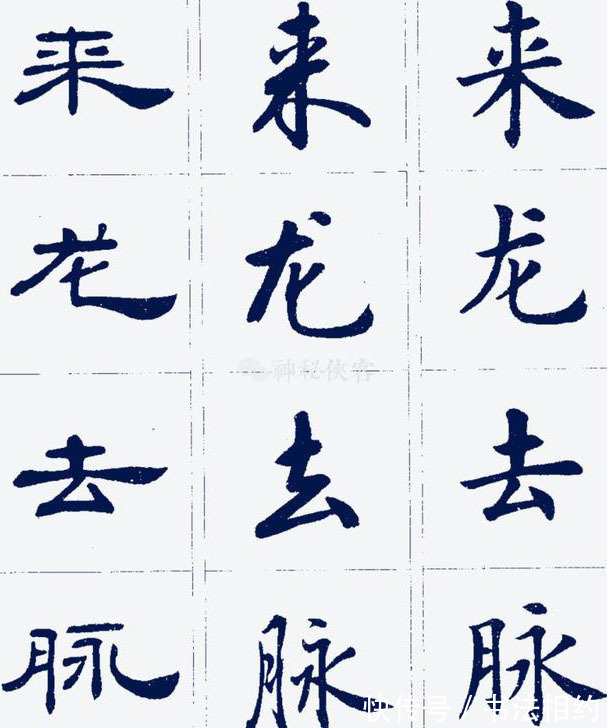 来 来 来
龙 龙 龙
神秘侠客
去 去 去
脉 脉 脉
快传号 / 书法相约